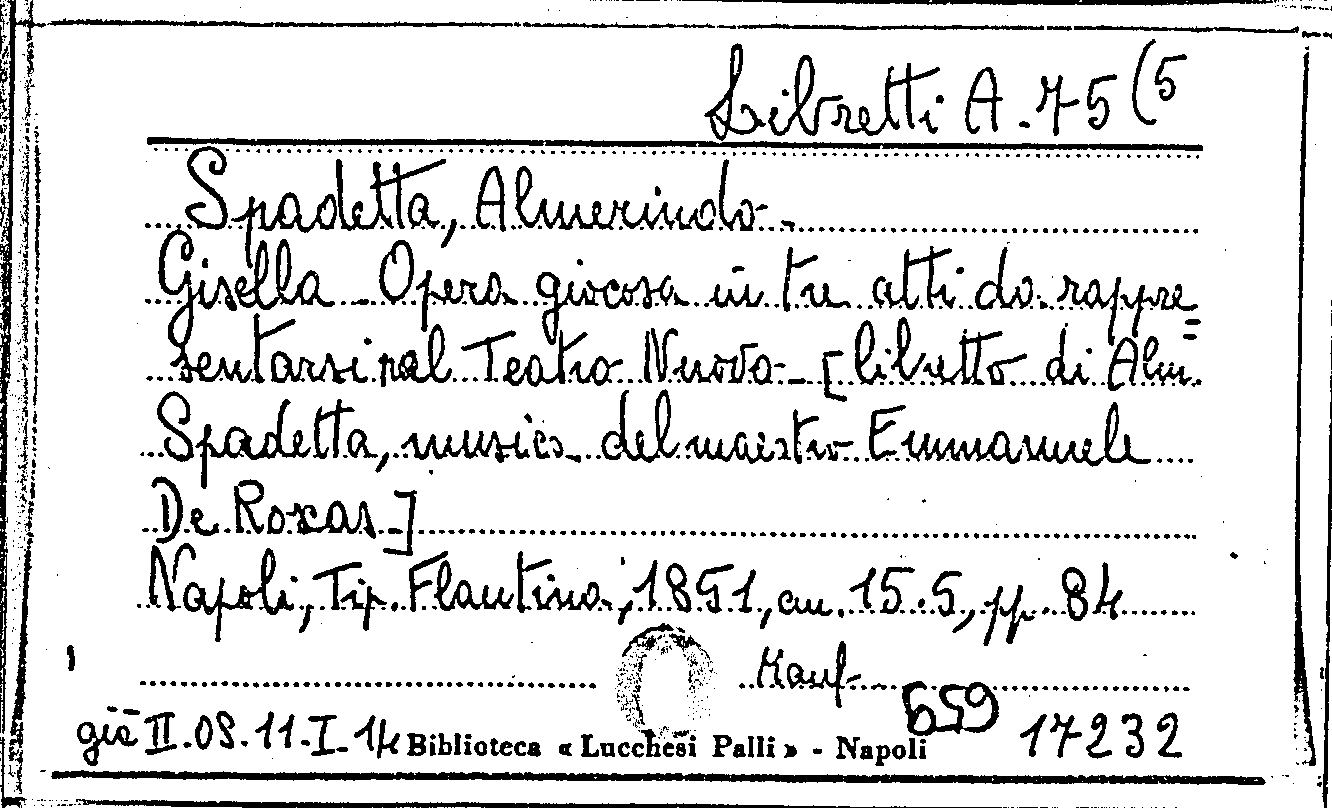 Libretti A. 75 (5
Spadetta, Almerindo -
Gisella - Opera giocosa in tre atti da rappre=
sentarsi nal Teatro Nuovo - [libretto di Alm.
Spadetta, musica del maestro Emmanuele
De Roxas -]
Napoli, Tip. Flautina, 1851, cm. 15.5, pp. 84
659
già II.OS.11-I-14 Biblioteca « Lucchesi Palli » - Napoli 17232